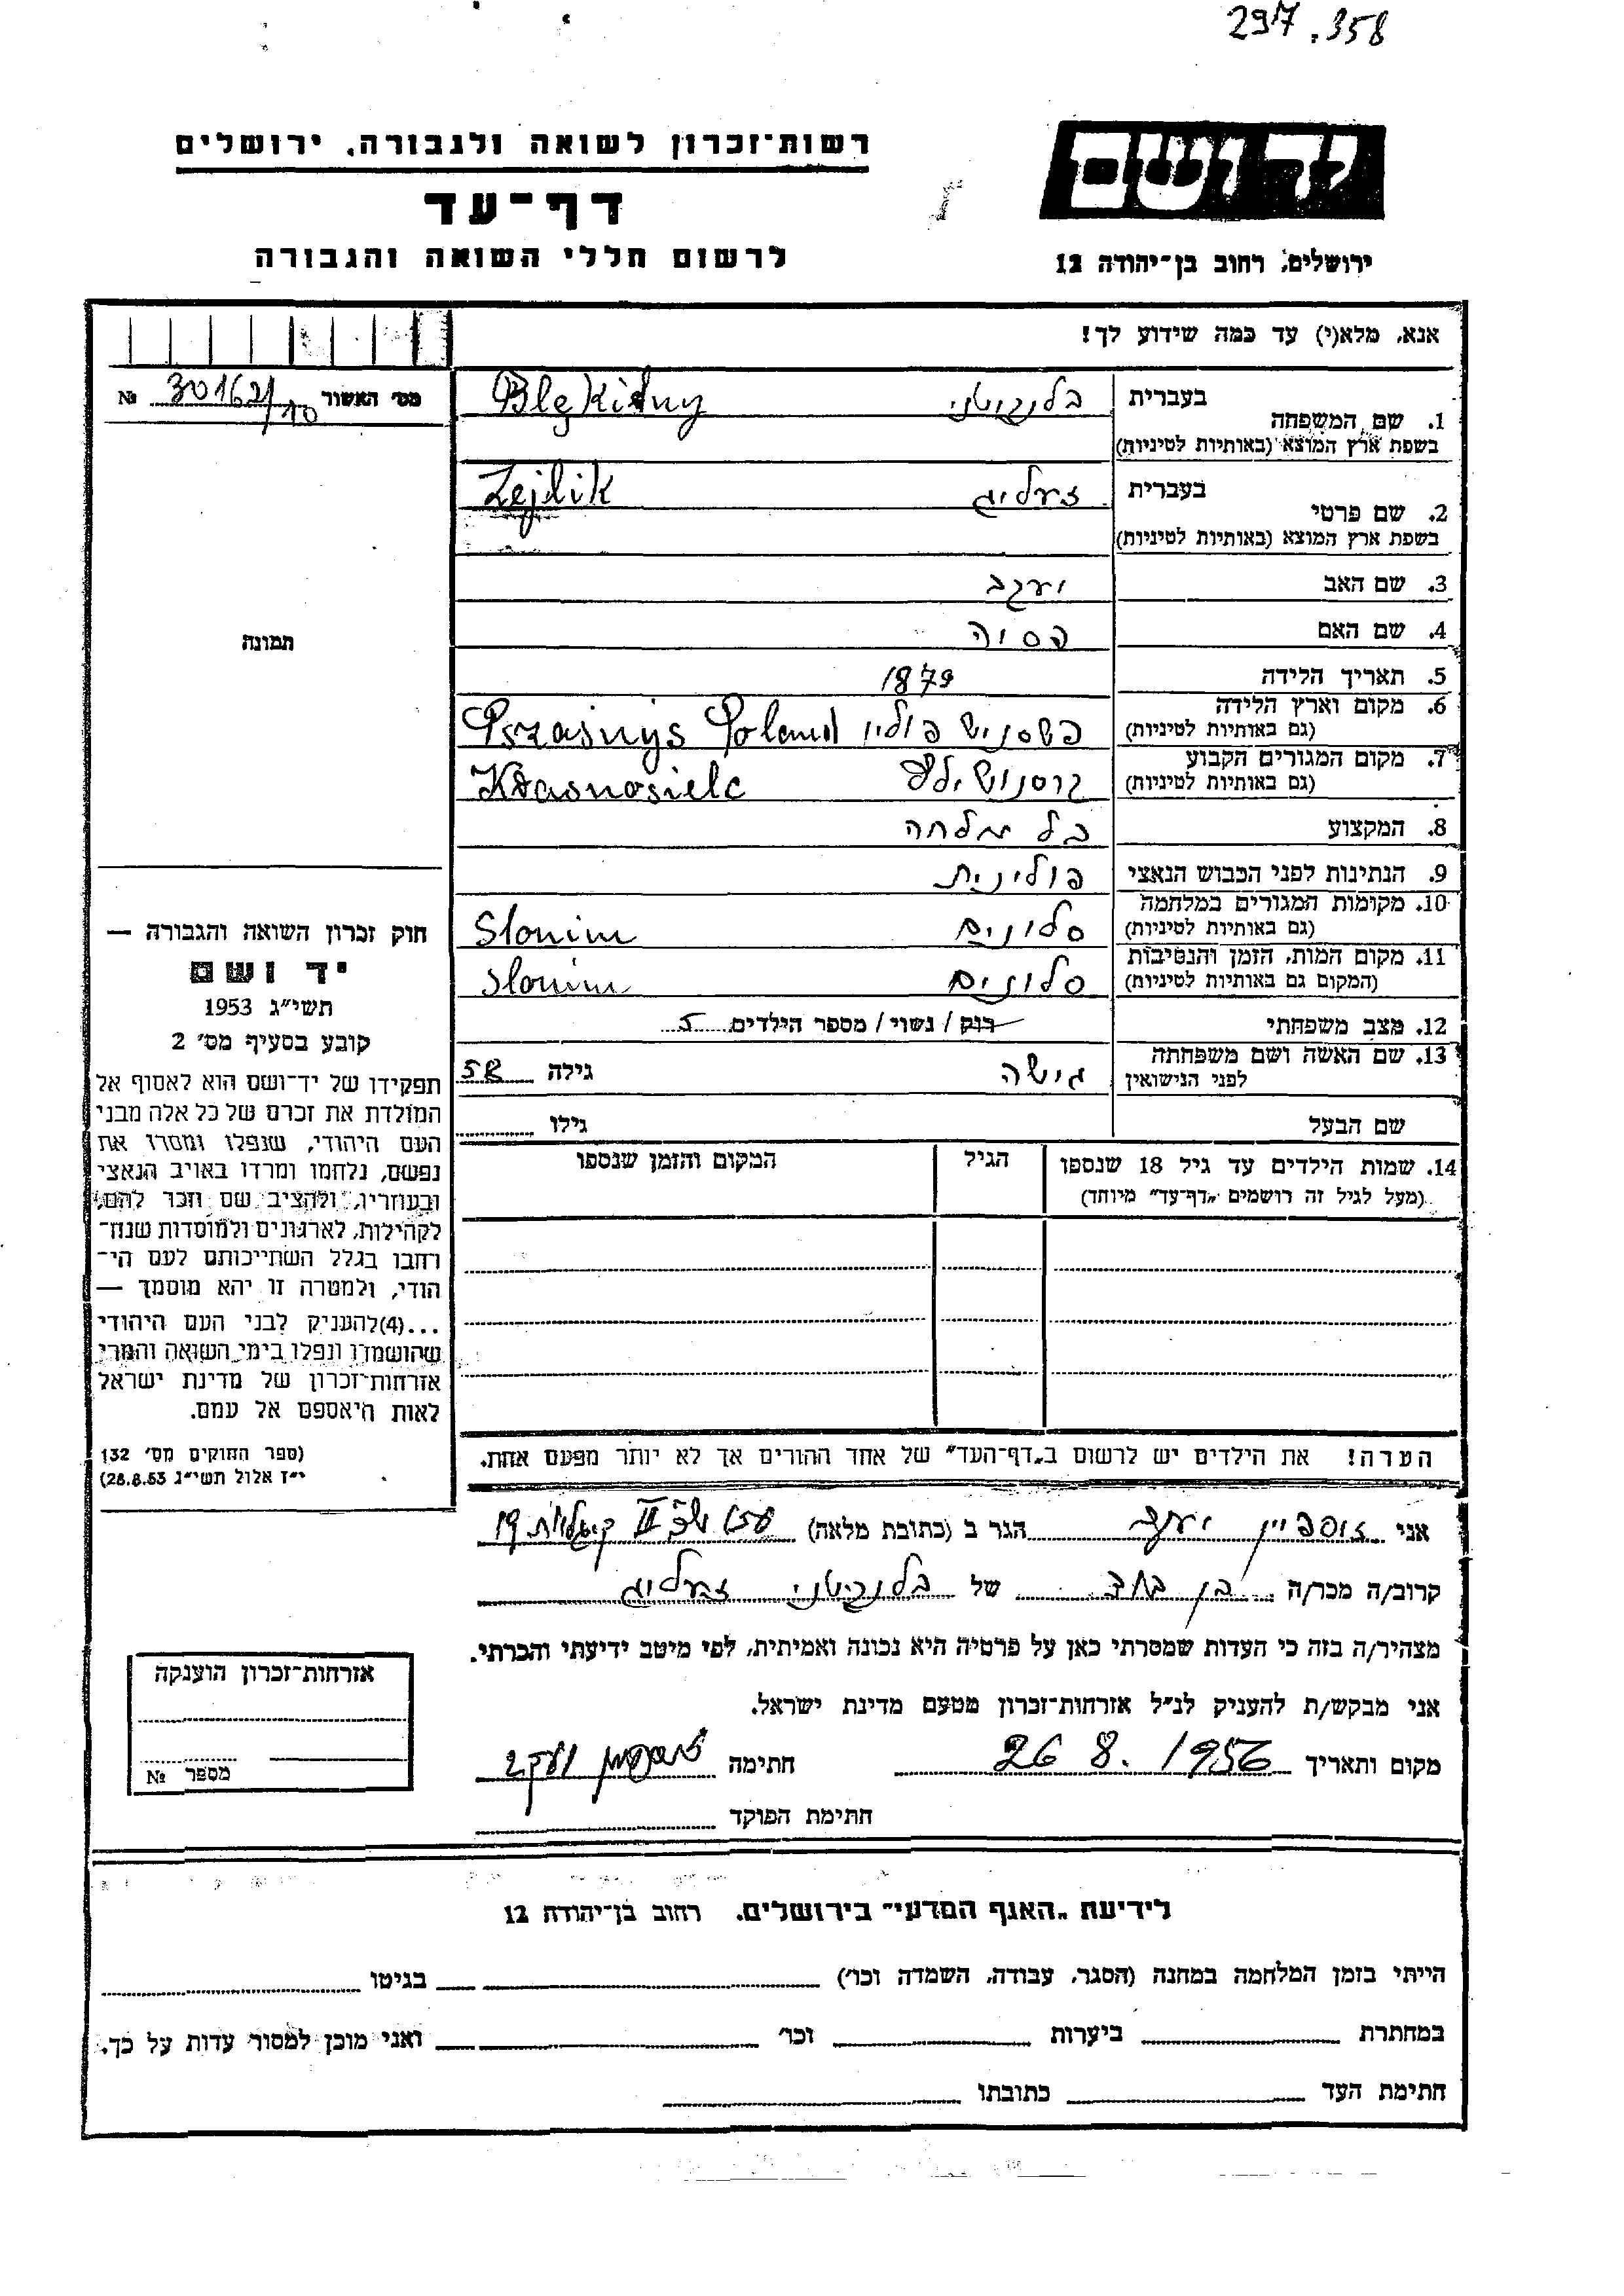 297.358
יד ושם
ירושלים, רחוב בן־יהודה 12
רשות־זכרון לשואה ולגבורה, ירושלים
דף־עד
לרשום חללי השואה והגבורה
אנא, מלא(י) עד כמה שידוע לך!
מס׳ האשור 30162/10 №
1. שם המשפחה בעברית בלנקיטני Blękitny
בשפת ארץ המוצא (באותיות לטיניות)
2. שם פרטי בעברית זעליג Zejlik
בשפת ארץ המוצא (באותיות לטיניות)
3. שם האב יעקב
4. שם האם פסיה
5. תאריך הלידה 1879
6. מקום וארץ הלידה
(גם באותיות לטיניות) פשסניש פולין Przasnys Poland
7. מקום המגורים הקבוע
(גם באותיות לטיניות) Krasnosielc
8. המקצוע בל מלחה
9. הנתינות לפני הכבוש הנאצי פולינית
10. מקומות המגורים במלחמה
(גם באותיות לטיניות) סלונים Slonim
11. מקום המות, הזמן והנסיבות
(המקום גם באותיות לטיניות) סלונים Slonim
12. מצב משפחתי רוק / נשוי / מספר הילדים 5
13. שם האשה ושם משפחתה
לפני הנישואין גישה גילה 58
שם הבעל גילו
14. שמות הילדים עד גיל 18 שנספו הגיל המקום והזמן שנספו
(מעל לגיל זה רושמים „דף־עד״ מיוחד)
הערה! את הילדים יש לרשום ב„דף־העד״ של אחד ההורים אך לא יותר מפעם אחת.
תמונה
חוק זכרון השואה והגבורה —
יד ושם
תשי״ג 1953
קובע בסעיף מס׳ 2
תפקידו של יד־ושם הוא לאסוף אל
המולדת את זכרם של כל אלה מבני
העם היהודי, שנפלו ומסרו את
נפשם, נלחמו ומרדו באויב הנאצי
ובעוזריו, ולהציב שם וזכר להם,
לקהילות, לארגונים ולמוסדות שנח־
רחבו בגלל השתייכותם לעם הי־
הודי, ולמטרה זו יהא מוסמך —
...(4)להעניק לבני העם היהודי
שהושמדו ונפלו בימי השואה והמרי
אזרחות־זכרון של מדינת ישראל
לאות היאספם אל עמם.
(ספר החוקים מס׳ 132
י״ז אלול תשי״ג 28.8.53)
אני יעקב הגר ב (כתובת מלאה) 19
קרוב/ה מכר/ה בן של בלנקיטני זעליג
מצהיר/ה בזה כי העדות שמסרתי כאן על פרטיה היא נכונה ואמיתית, לפי מיטב ידיעתי והכרתי.
אני מבקש/ת להעניק לנ״ל אזרחות־זכרון מטעם מדינת ישראל.
מקום ותאריך 26 8. 1956 חתימה יעקב
חתימת הפוקד
אזרחות־זכרון הוענקה
מספר №
לידיעת „האגף המדעי״ בירושלים, רחוב בן־יהודה 12
הייתי בזמן המלחמה במחנה (הסגר, עבודה, השמדה וכו׳) בגיטו
במחתרת ביערות וכו׳ ואני מוכן למסור עדות על כך.
חתימת העד כתובתו